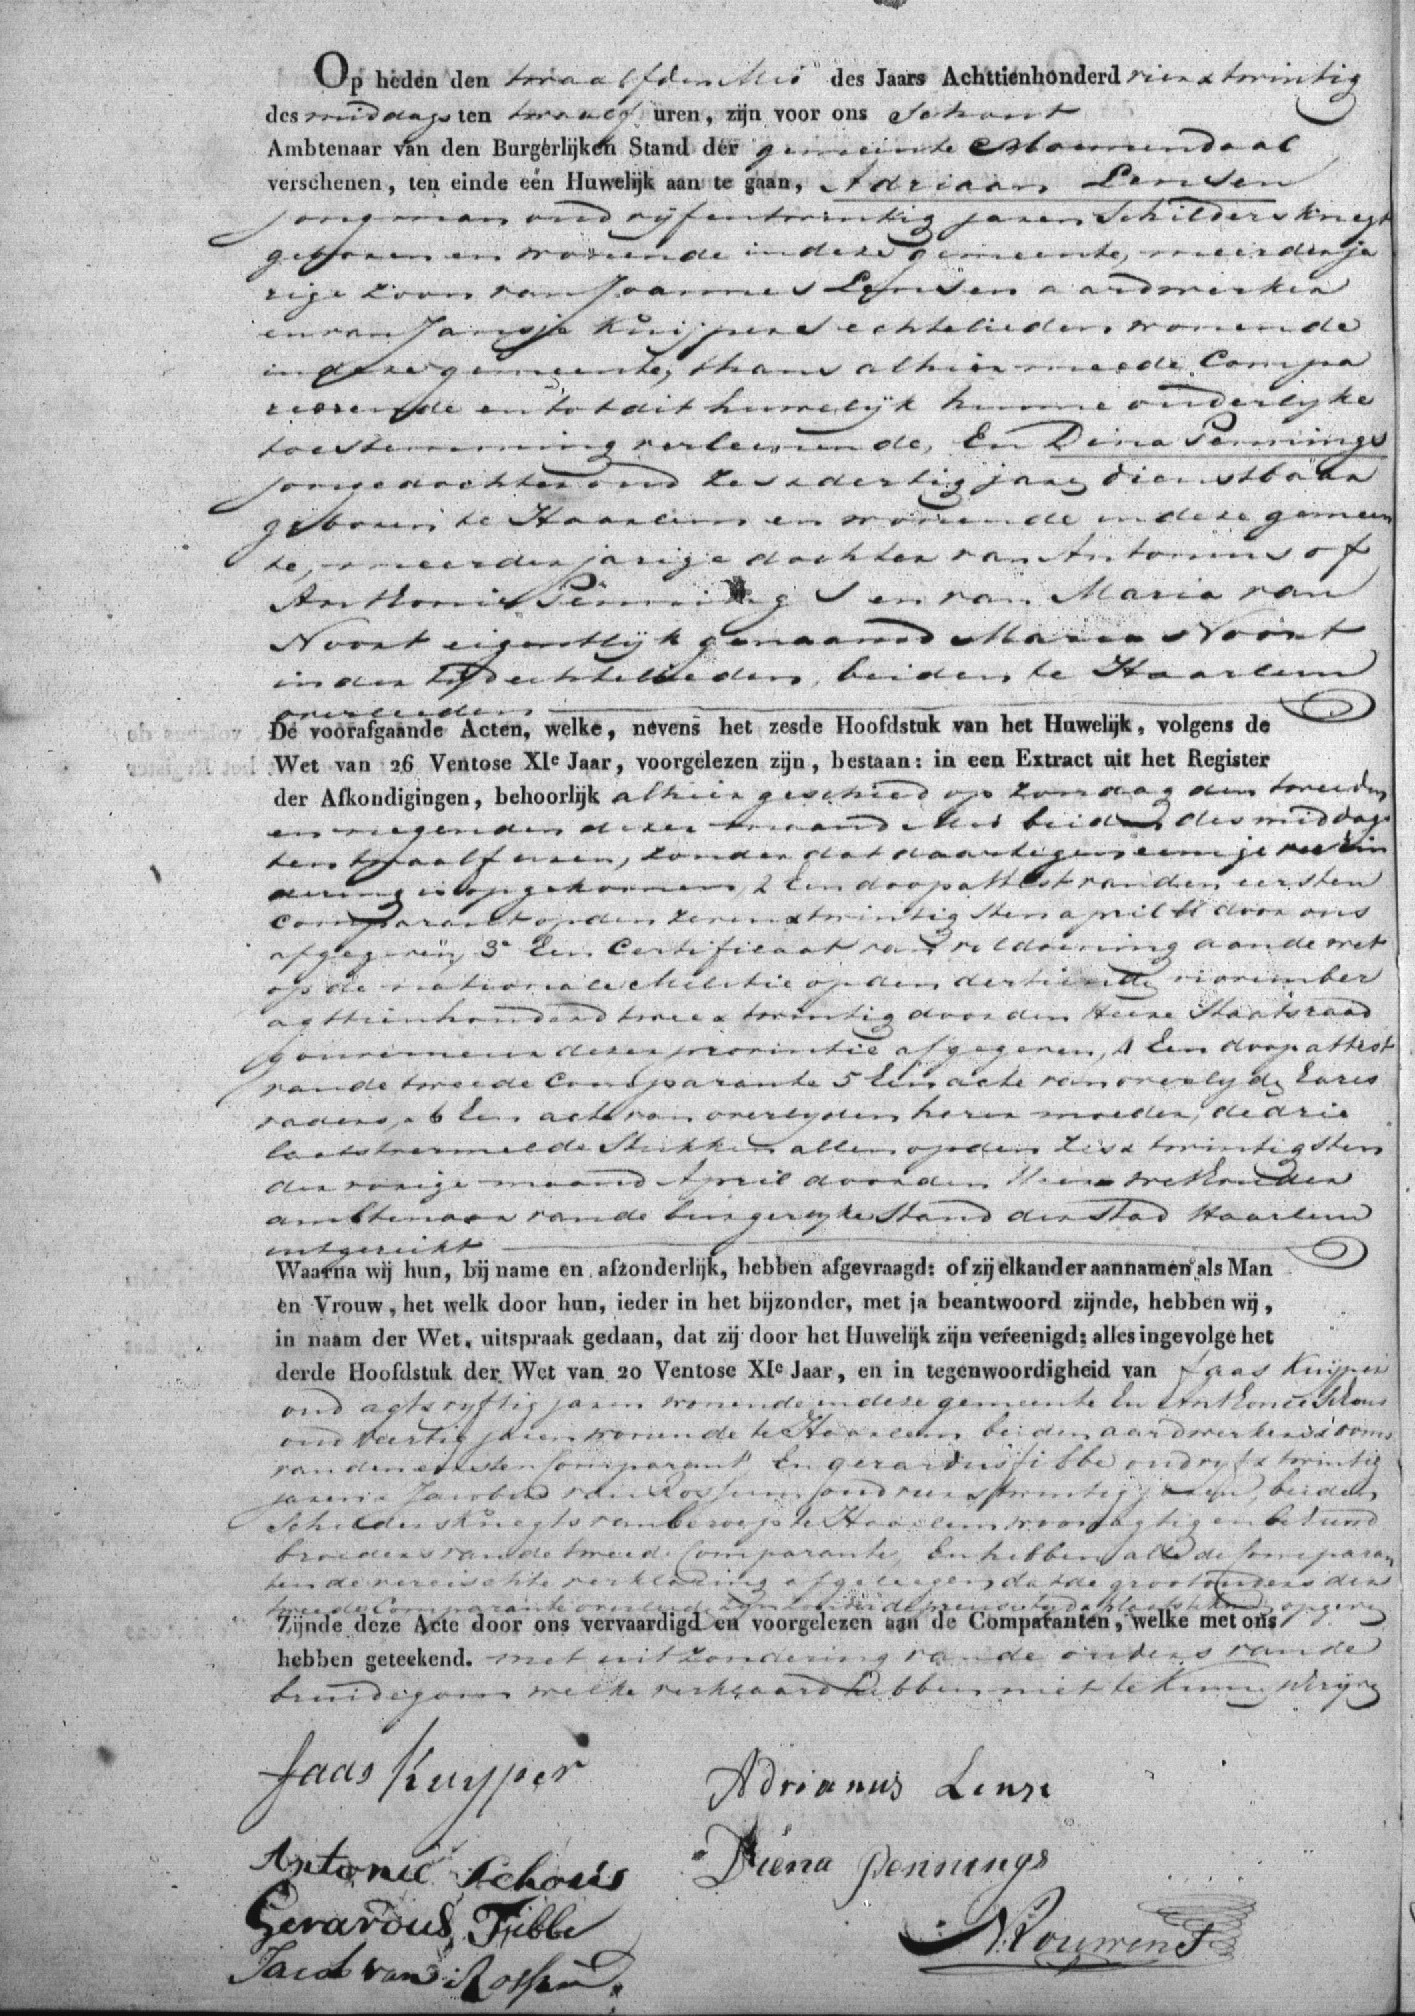 Op heden den twaalfden Mei des Jaars Achttienhonderd vier & twintig
des middags ten twaalf uren, zijn voor ons Schout
Ambtenaar van den Burgerlijken Stand der gemeente Bloemendaal
verschenen, ten einde een Huwelijk aan te gaan, Adriaan Lensen
jongman oud vijfentwintig jaren Schildersknegt
geboren en wonende in deze gemeente, meerderja
rige zoon van Joannes Lensen aardwerker
en van Jansje Kuijper echtelieden wonende
in deze gemeente, thans alhier meede Compa
reerende en tot dit huwelijk hunne ouderlijke
toestemming verleenende, En Dina Pennings
jongedochter oud zes & dertig jare dienstbaar
geboren te Haarlem en wonende in deze gemeen
te, meerderjarige dochter van Antonius of
Anthonie Pennings en van Maria van
Noort eigentlijk genaamd Maria Noort
in der tijd echtelieden, beiden te Haarlem
overleeden
De voorafgaande Acten, welke, nevens het zesde Hoofdstuk van het Huwelijk, volgens de
Wet van 26 Ventose XIe Jaar, voorgelezen zijn, bestaan: in een Extract uit het Register
der Afkondigingen, behoorlijk alhier geschied op zondag den tweeden
en negenden dezer maand Mei beiden des middags
ten twaalf uren, zonder dat daartegen eenige verhin
dering is opgekomen, 2 Een doopattest van den eersten
comparant op den zeven & twintigsten april ll door ons
afgegeven, 3e Een Certificaat van voldoening aan de wet
op de nationale Militie op den dertiende november
agttienhonderd twee & twintig door den Heere Staatsraad
gouverneur dezer provintie afgegeven, 4 Een doopattest
van de tweede Comparante 5 Een acte van overlyde hares
vaders, 6 Een acte van overlyden harer moeder, de drie
laatstvermelde Stukken allen op den zes & twintigsten
der vorige maand April door den Heer Wethouder
ambtenaar van de burgerlyke Stand der Stad Haarlem
uitgereikt
Waarna wij hun, bij name en afzonderlijk, hebben afgevraagd: of zij elkander aannamen als Man
en Vrouw, het welk door hun, ieder in het bijzonder, met ja beantwoord zijnde, hebben wij,
in naam der Wet, uitspraak gedaan, dat zij door het Huwelijk zijn vereenigd; alles ingevolge het
derde Hoofdstuk der Wet van 20 Ventose XIe Jaar, en in tegenwoordigheid van Jaas Kuijper
oud agt & vyftig jaren wonende in deze gemeente En Anthonie Schous
oud veertig jaren wonende te Haarlem beiden aardwerkers & ooms
van den eersten Comparant, En gerardus Tibbe oud vyf & twintig
jaren & Jacobus van Rossum oud vier & twintig jaren, beiden
Schildersknegts van beroep te Haarlem woonagtig en
broeders van de tweede Comparante, En hebben alle de Comparan
ten de vereischte verklaring afgeleegen dat de grootouders der
tweede Comparante overleden zijn
Zijnde deze Acte door ons vervaardigd en voorgelezen aan de Comparanten, welke met ons
hebben geteekend. met uitzondering van de ouders van de
bruidegom welke verklaard hebben niet te kunne schryve
Jaas Kuyper
Adrianus Lense
Antonie Schous
Diena Pennings
Gerardus Tibbe
Jacob van Rossum